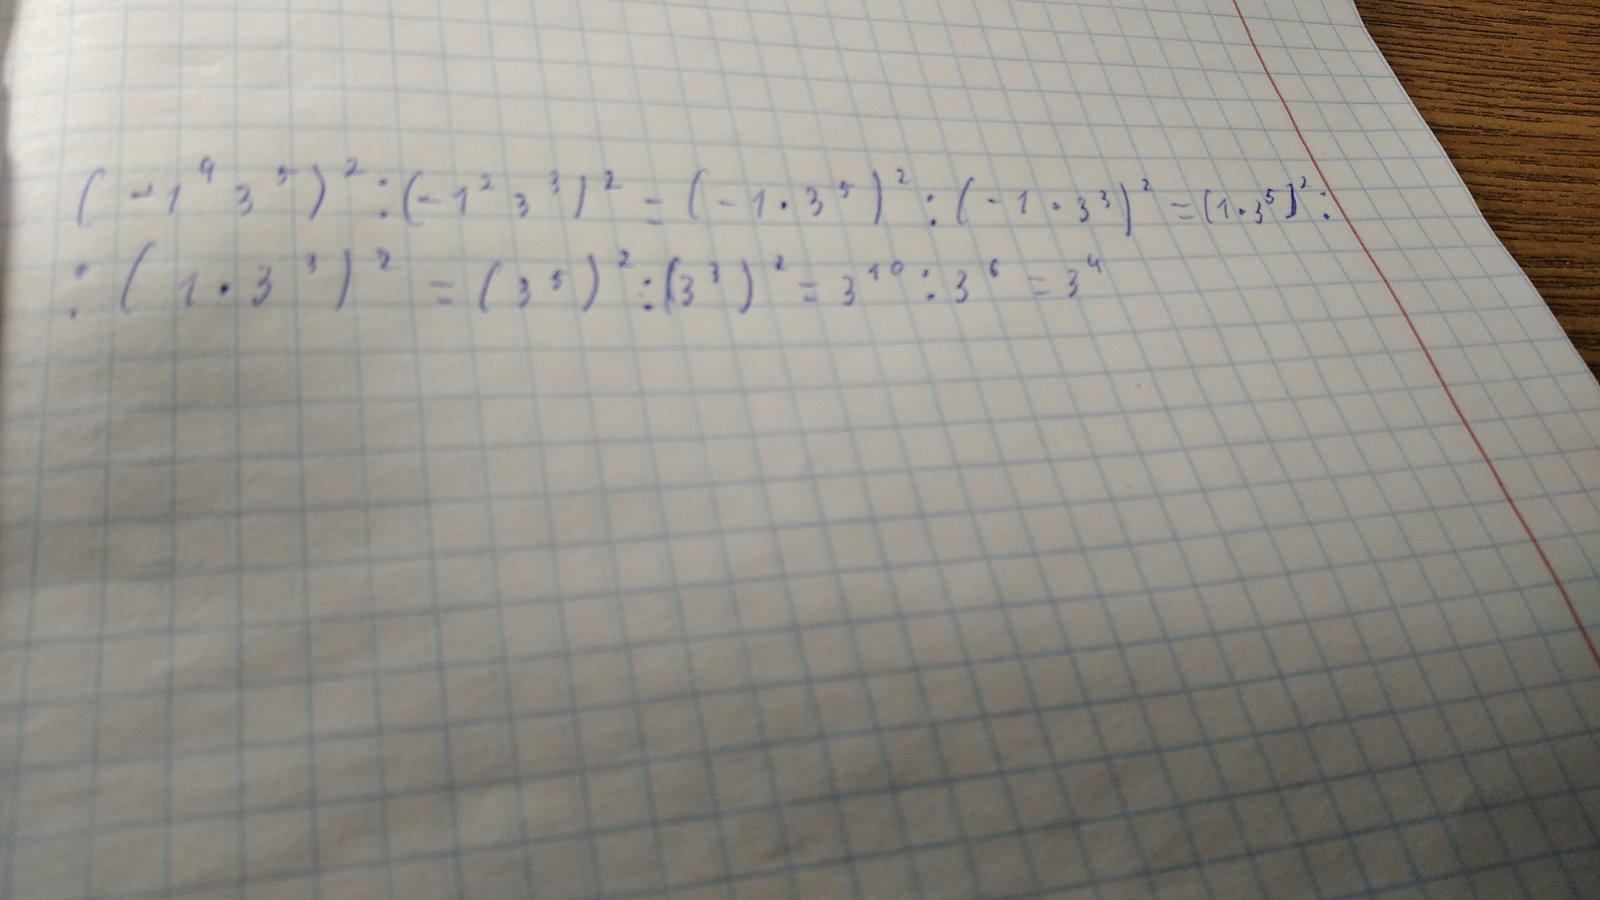 (-1⁴ 3⁵)² : (-1² 3³)² = (-1 · 3⁵)² : (-1 · 3³)² = (1 · 3⁵)² :
: (1 · 3³)² = (3⁵)² : (3³)² = 3¹⁰ : 3⁶ = 3⁴